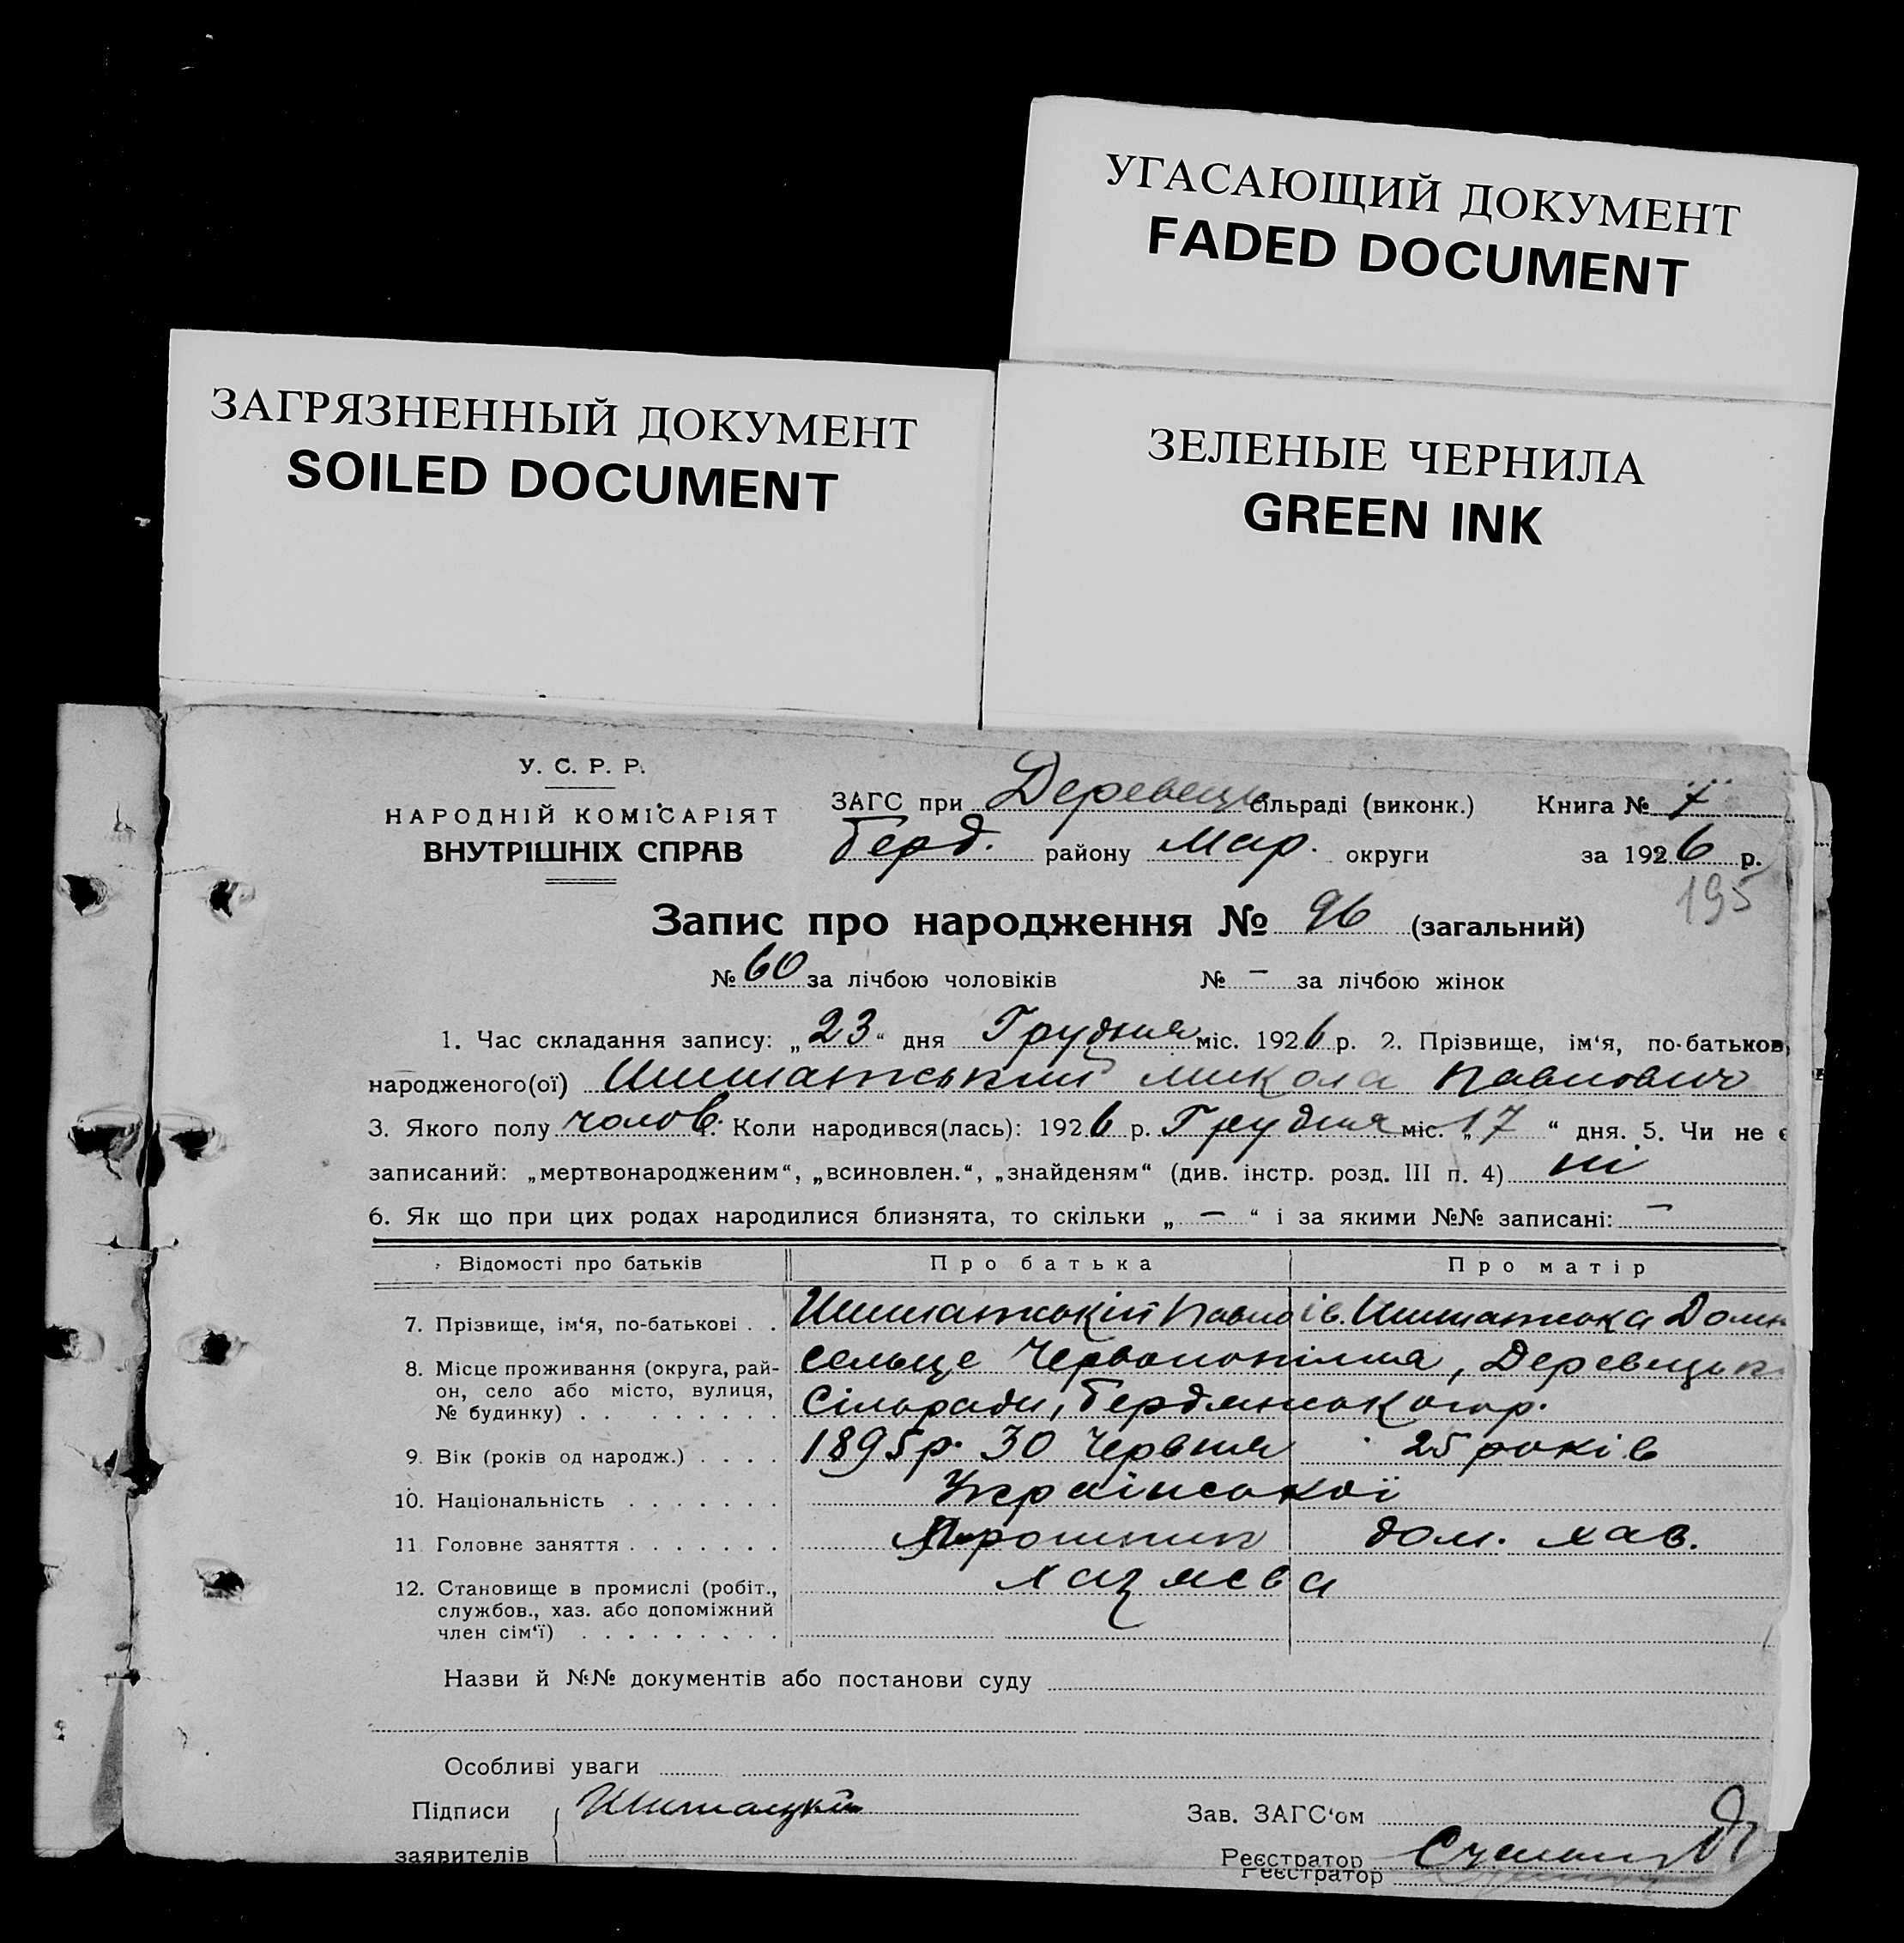 УГАСАЮЩИЙ ДОКУМЕНТ
FADED DOCUMENT
ЗАГРЯЗНЕННЫЙ ДОКУМЕНТ
SOILED DOCUMENT
ЗЕЛЕНЫЕ ЧЕРНИЛА
GREEN INK
У. С. Р. Р.
НАРОДНІЙ КОМІСАРІЯТ
ВНУТРІШНІХ СПРАВ
ЗАГС при Деревецк сільраді (виконк.) Книга №
Берд. району Мар. округи за 1926 р.
195
Запис про народження № 96 (загальний)
№ 60 за лічбою чоловіків № — за лічбою жінок
1. Час складання запису: „23“ дня Грудня міс. 1926 р. 2. Прізвище, ім‘я, по-батьков
народженого(ої) Шишатський Микола Павлович
3. Якого полу чолов. 4. Коли народився(лась): 1926 р. Грудня міс. „17“ дня. 5. Чи не є
записаний: „мертвонародженим“, „всиновлен.“, „знайденям“ (див. інстр. розд. III п. 4) ні
6. Як що при цих родах народилися близнята, то скільки „—“ і за якими №№ записані: —
Відомості про батьків Про батька Про матір
7. Прізвище, ім‘я, по-батькові . . Шишатській Павло Ів. Шишатська Домн
8. Місце проживання (округа, рай-
он, село або місто, вулиця,
№ будинку) . . . . . . . .
сельце Червонопілля, Деревецьк
Сільради, Бердянськ
9. Вік (років од народж.) . . . . 1895 р. 30 Червня 25 років
10. Національність . . . . . . . Української
11. Головне заняття . . . . . . . дом. хаз.
12. Становище в промислі (робіт.,
службов., хаз. або допоміжний
член сім‘ї) . . . . . . . . .
Хазяєва
Назви й №№ документів або постанови суду
Особливі уваги
Підписи
заявителів
Шишацкій
Зав. ЗАГС‘ом
Реєстратор
Реєстратор